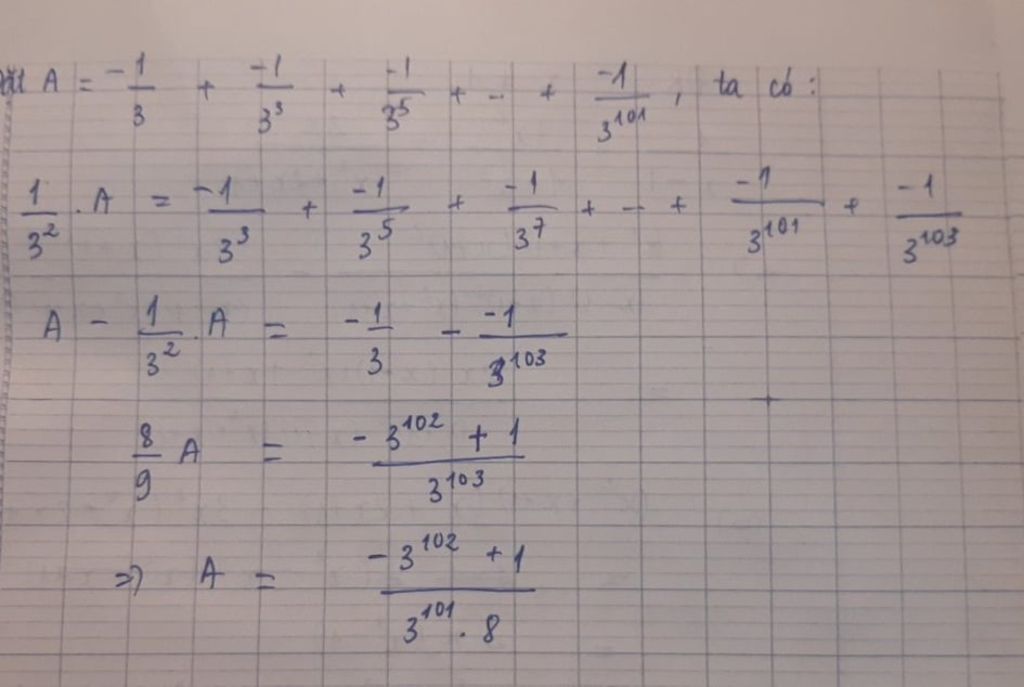 Đặt A = -1/3 + -1/3^3 + -1/3^5 + ... + -1/3^101, ta có:
1/3^2 . A = -1/3^3 + -1/3^5 + -1/3^7 + ... + -1/3^101 + -1/3^103
A - 1/3^2 . A = -1/3 - -1/3^103
8/9 A = (-3^102 + 1)/3^103
=> A = (-3^102 + 1)/(3^101 . 8)